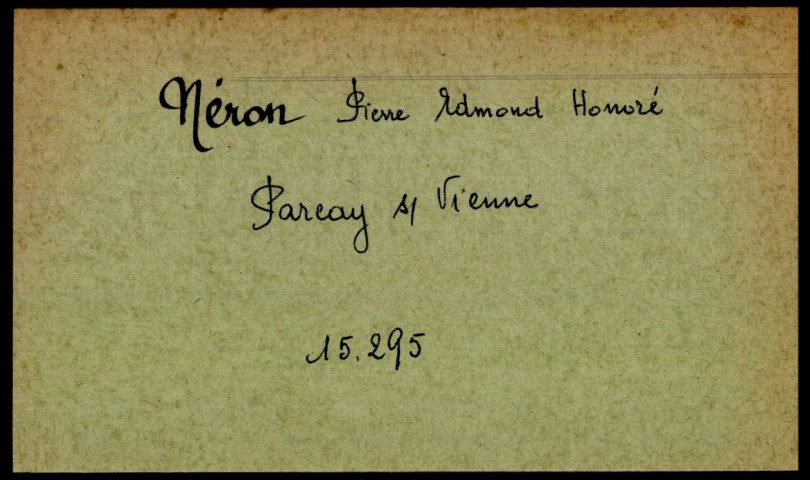 Néron Pierre Edmond Honoré
Parcay s/ Vienne
15.295